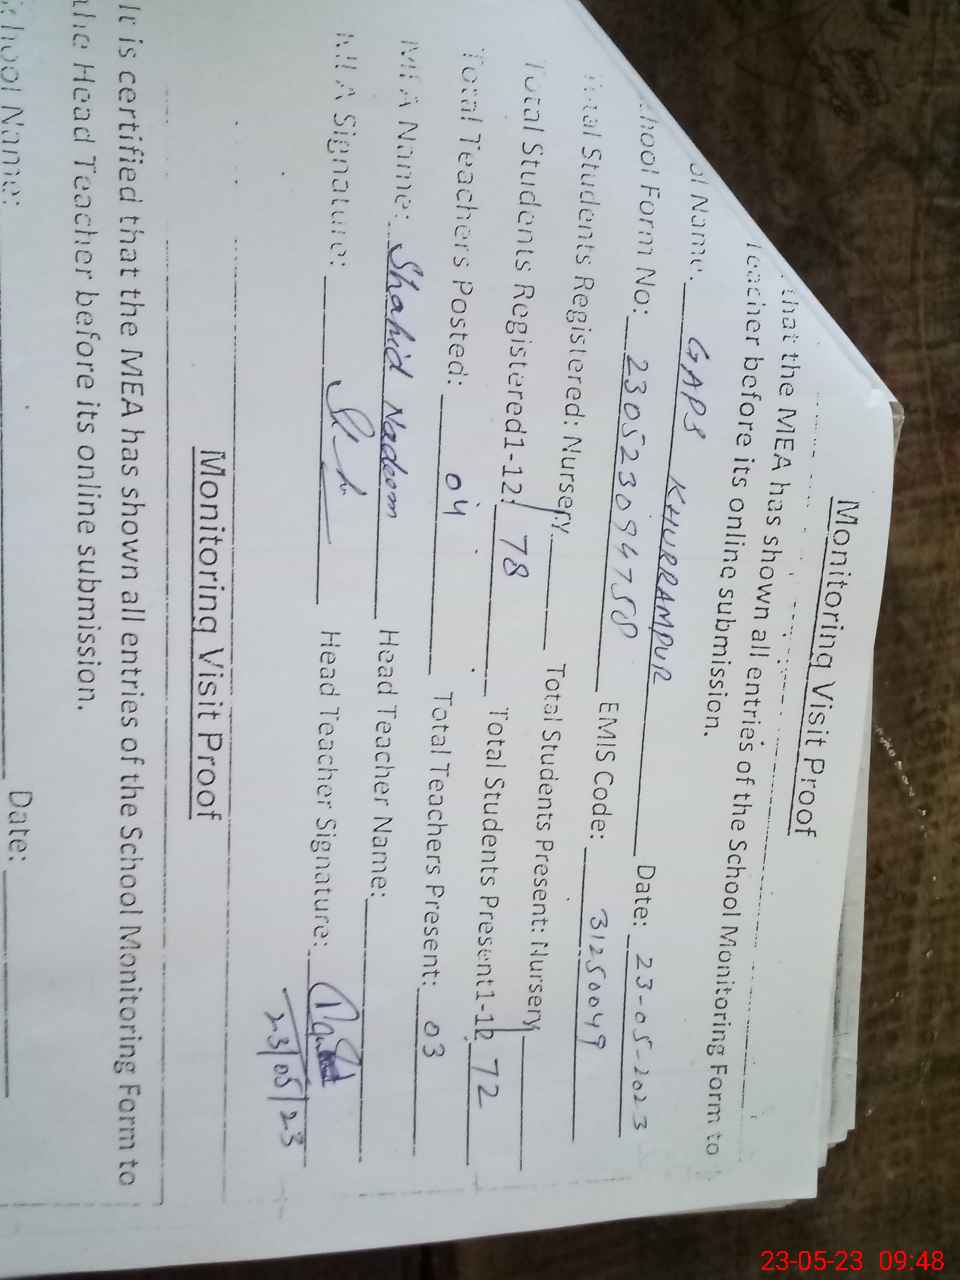 Monitoring Visit Proof
that the MEA has shown all entries of the School Monitoring Form to
Teacher before its online submission.
ol Name: GAPS KHURRAMPUR Date: 23-05-2023
chool Form No: 230523094758 EMIS Code: 31250049
Total Students Registered: Nursery Total Students Present: Nursery
Total Students Registered1-12: 78 Total Students Present1-12 72
Total Teachers Posted: 04 Total Teachers Present: 03
MEA Name: Shahid Nadeem Head Teacher Name:
MEA Signature: Head Teacher Signature:
23/05/23
Monitoring Visit Proof
It is certified that the MEA has shown all entries of the School Monitoring Form to
the Head Teacher before its online submission.
chool Name: Date:
23-05-23 09:48